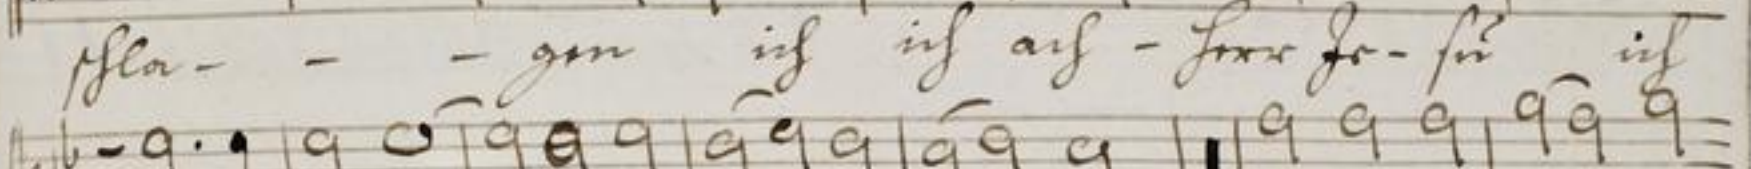 schla - - - gen ich ich ach - Herr Je - su ich